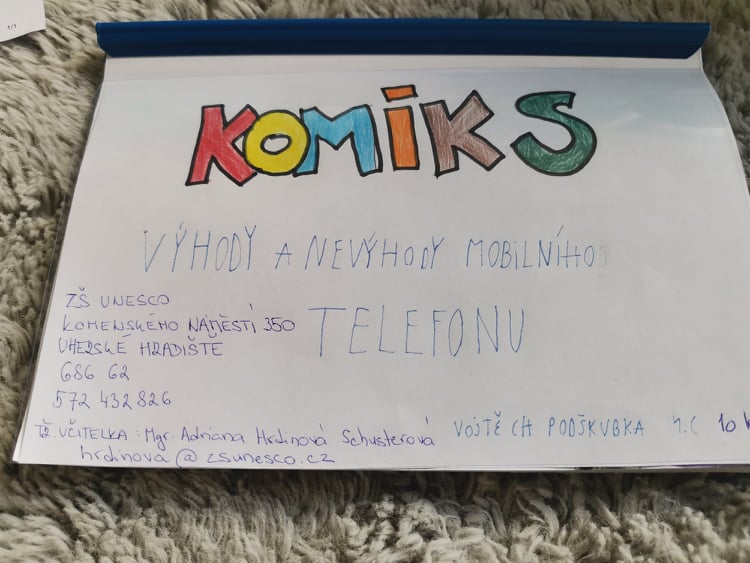 KOMIKS
VÝHODY A NEVÝHODY MOBILNÍHO
TELEFONU
ZŠ UNESCO
KOMENSKÉHO NÁMĚSTÍ 350
UHERSKÉ HRADIŠTĚ
686 62
572 432 826
TŘ. UČITELKA: Mgr. Adriana Hrdinová Schusterová
hrdinova@zsunesco.cz
VOJTĚCH PODŠKUBKA 4.C 10
1/1